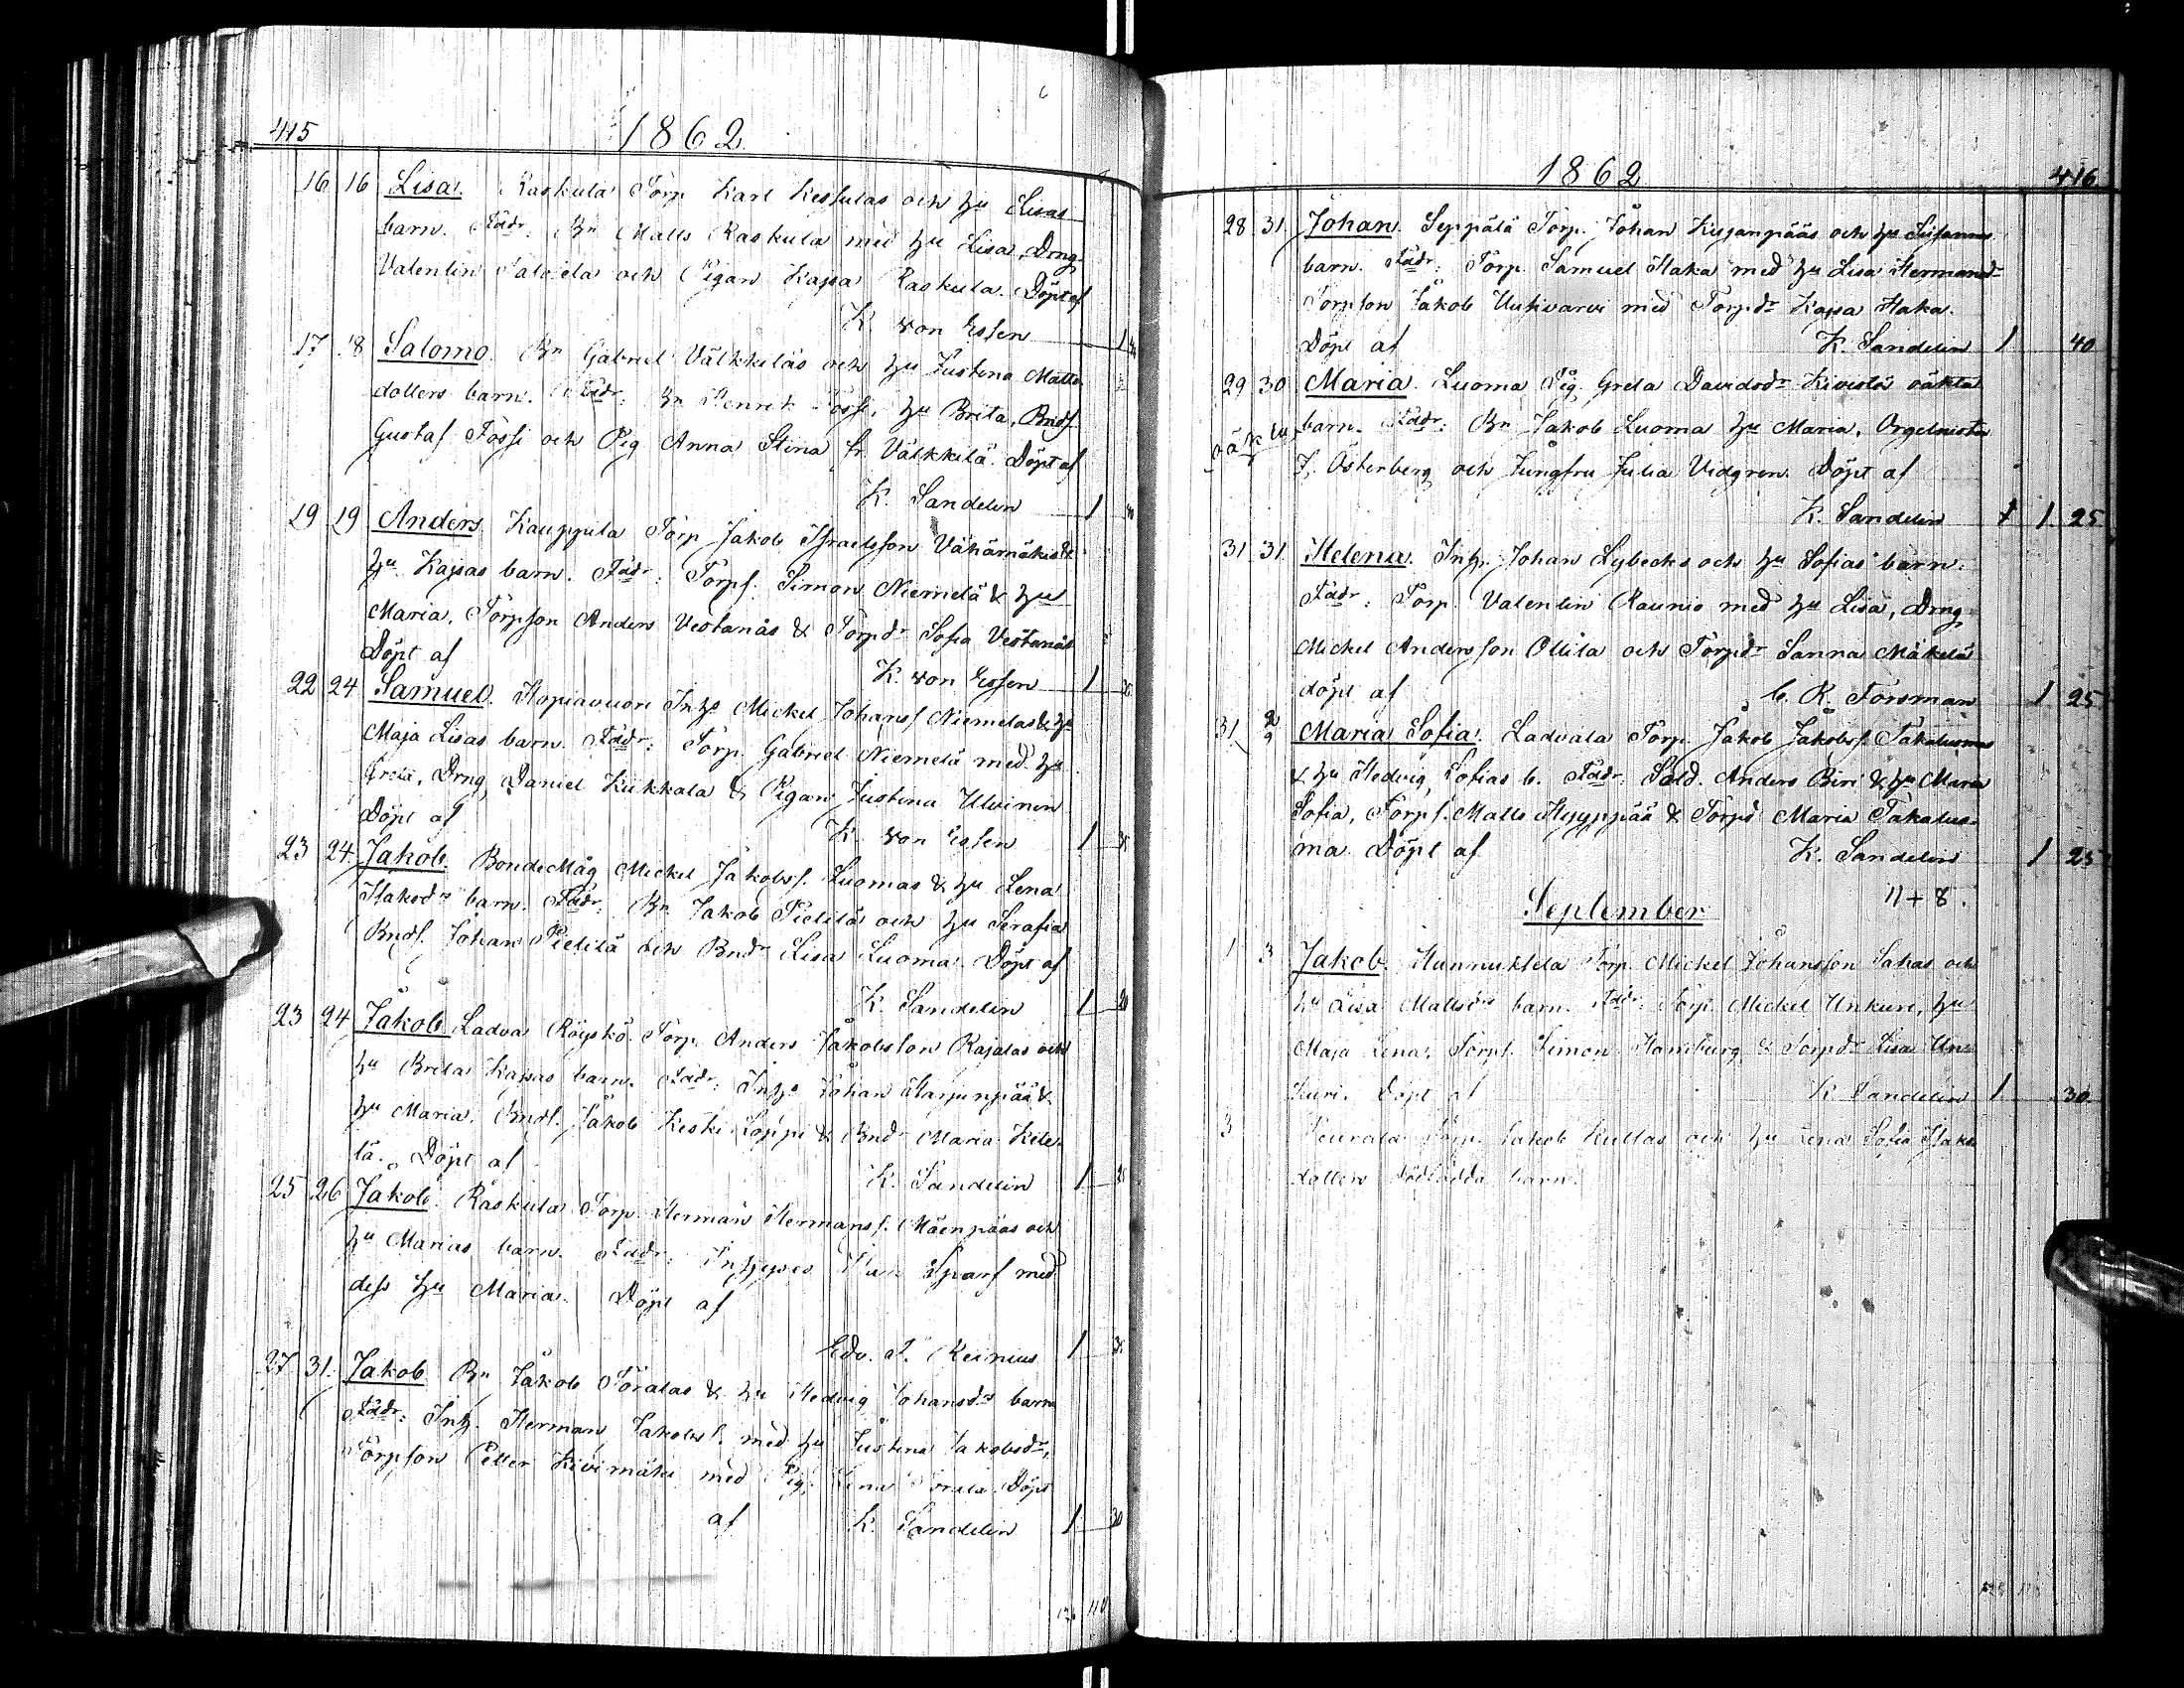 415
1862
16 16 Lisa. Raskula Torp. Karl Kessulas och hu Lisas
barn. Faddr: Bn Matts Raskula med hu Lisa, Drng
Valentin och Pigan Kajsa Raskula. Döpt af
K. von Essen 1
17 18 Salomo. Bn Gabriel Välkkiläs och hu Justina Matts
dotters barn. Faddr: Bn Henrik Fossi, hu Brita, Bndf.
Gustaf Fossi och Pig Anna Stina fr. Välkkilä. Döpt af
K. Sandelin 1
19 19 Anders. Kauppila Torp Jakob Israelsson Vähämäkis &
hu Kajsas barn. Faddr: Torpf. Simon Niemelä & hu
Maria, Torpson Anders Vestanås & Torpdr Sofia Vestanås
Döpt af
K. von Essen 1
22 24 Samuel. Hopiavuori Inhs Mickel Johansf. Niemeläs & hu
Maja Lisas barn. Faddr: Torp. Gabriel Niemelä med hu
Greta, Drng Daniel Kukkala & Pigan Justina Ulvinen
Döpt af
K. von Essen 1
23 24 Jakob. BondeMåg Mickel Jakobsf. Luomas & hu Lena
Isaksdrs barn. Faddr: Bn Jakob Pieltilä och hu Serafia
Bndf. Johan Pieltilä och Bndr Lisa Luoma. Döpt af
K. Sandelin 1 20
23 24 Jakob. Ladva Röyskö Torp. Anders Jakobsson Rajalas och
hu Brita Kajsas barn. Faddr: Inhs Johan Harjunpää &
hu Maria, Bndf. Jakob Keski Loppi & Bndr Maria Kile
lä. Döpt af
K. Sandelin 1
25 26 Jakob. Raskula Torp Herman Hermansf. Mäenpääs och
hu Marias barn. Faddr: Inhyses Sparf med
dess hu Maria. Döpt af
Edv. J. Reinius 1
27 31. Jakob Bn Jakob Töralas & hu Hedvig Johansdrs barn
Faddr: Inh. Herman Jakobsf. med hu Justina Jakobsdr,
Torpson Petter Kivimäki med Pig. Lena Törala. Döpt
af K. Sandelin 1 30
1862
416
28 31 Johan. Seppälä Torp. Johan Kujanpääs och hu Susannas
barn. Faddr: Torp. Samuel Haka med hu Lisa Hermansdr
Torpson Jakob Uusivarvi med Torpdr Kajsa Haka.
Döpt af K. Sandelin 1 40
29 30 Maria. Luoma Pig. Greta Davidsdr Kivistö oäkta
oäkta barn. Faddr: Bn Jakob Luoma hu Maria, Orgelnisten
J. Österberg och Jungfru Julia Vidgren. Döpt af
K. Sandelin 1 1 25
31 31 Helena. Inh. Johan Lybecks och hu Sofias barn.
Faddr: Torp. Valentin Raunio med hu Lisa, Drng
Mickel Andersson Ollila och Torpdr Sanna Mäkelä
döpt af C. R. Forsman 1 25
31 2/9 Maria Sofia. Ladvala Torp. Jakob Jakobsf. Takaluomas
& hu Hedvig Sofias b. Faddr: Sold. Anders Biri & hu Maria
Sofia, Torpf. Matts Hyyppää & Torpd Maria Takaluo-
ma. Döpt af K. Sandelin 1 25
11 + 8.
September
1 3 Jakob. Hannuksela Torp. Mickel Johansson Sakas och
hu Lisa Mattsdrs barn. Faddr: Torp. Mickel Unkuri, hu
Maja Lena, Torpf. Simon Hamburg & Torpdr Lisa Un-
kuri. Döpt af K. Sandelin 1 30
3 Peurala Torp. Jakob Kullas och hu Lena Sofia Isaks
dotters dödfödda barn.